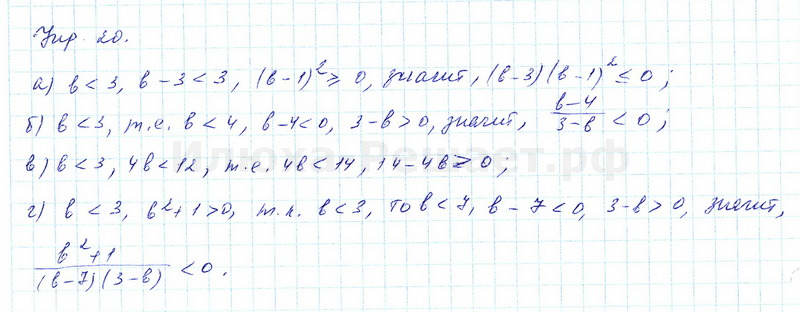 Упр. 20.
а) в < 3, в − 3 < 3, (в − 1)² ≥ 0, значит, (в − 3)(в − 1)² ≤ 0;
б) в < 3, т.е. в < 4, в − 4 < 0, 3 − в > 0, значит, (в − 4)/(3 − в) < 0;
в) в < 3, 4в < 12, т.е. 4в < 14, 14 − 4в > 0;
г) в < 3, в² + 1 > 0, т.к. в < 3, то в < 7, в − 7 < 0, 3 − в > 0, значит,
(в² + 1)/((в − 7)(3 − в)) < 0.
Илюха-Решает.рф